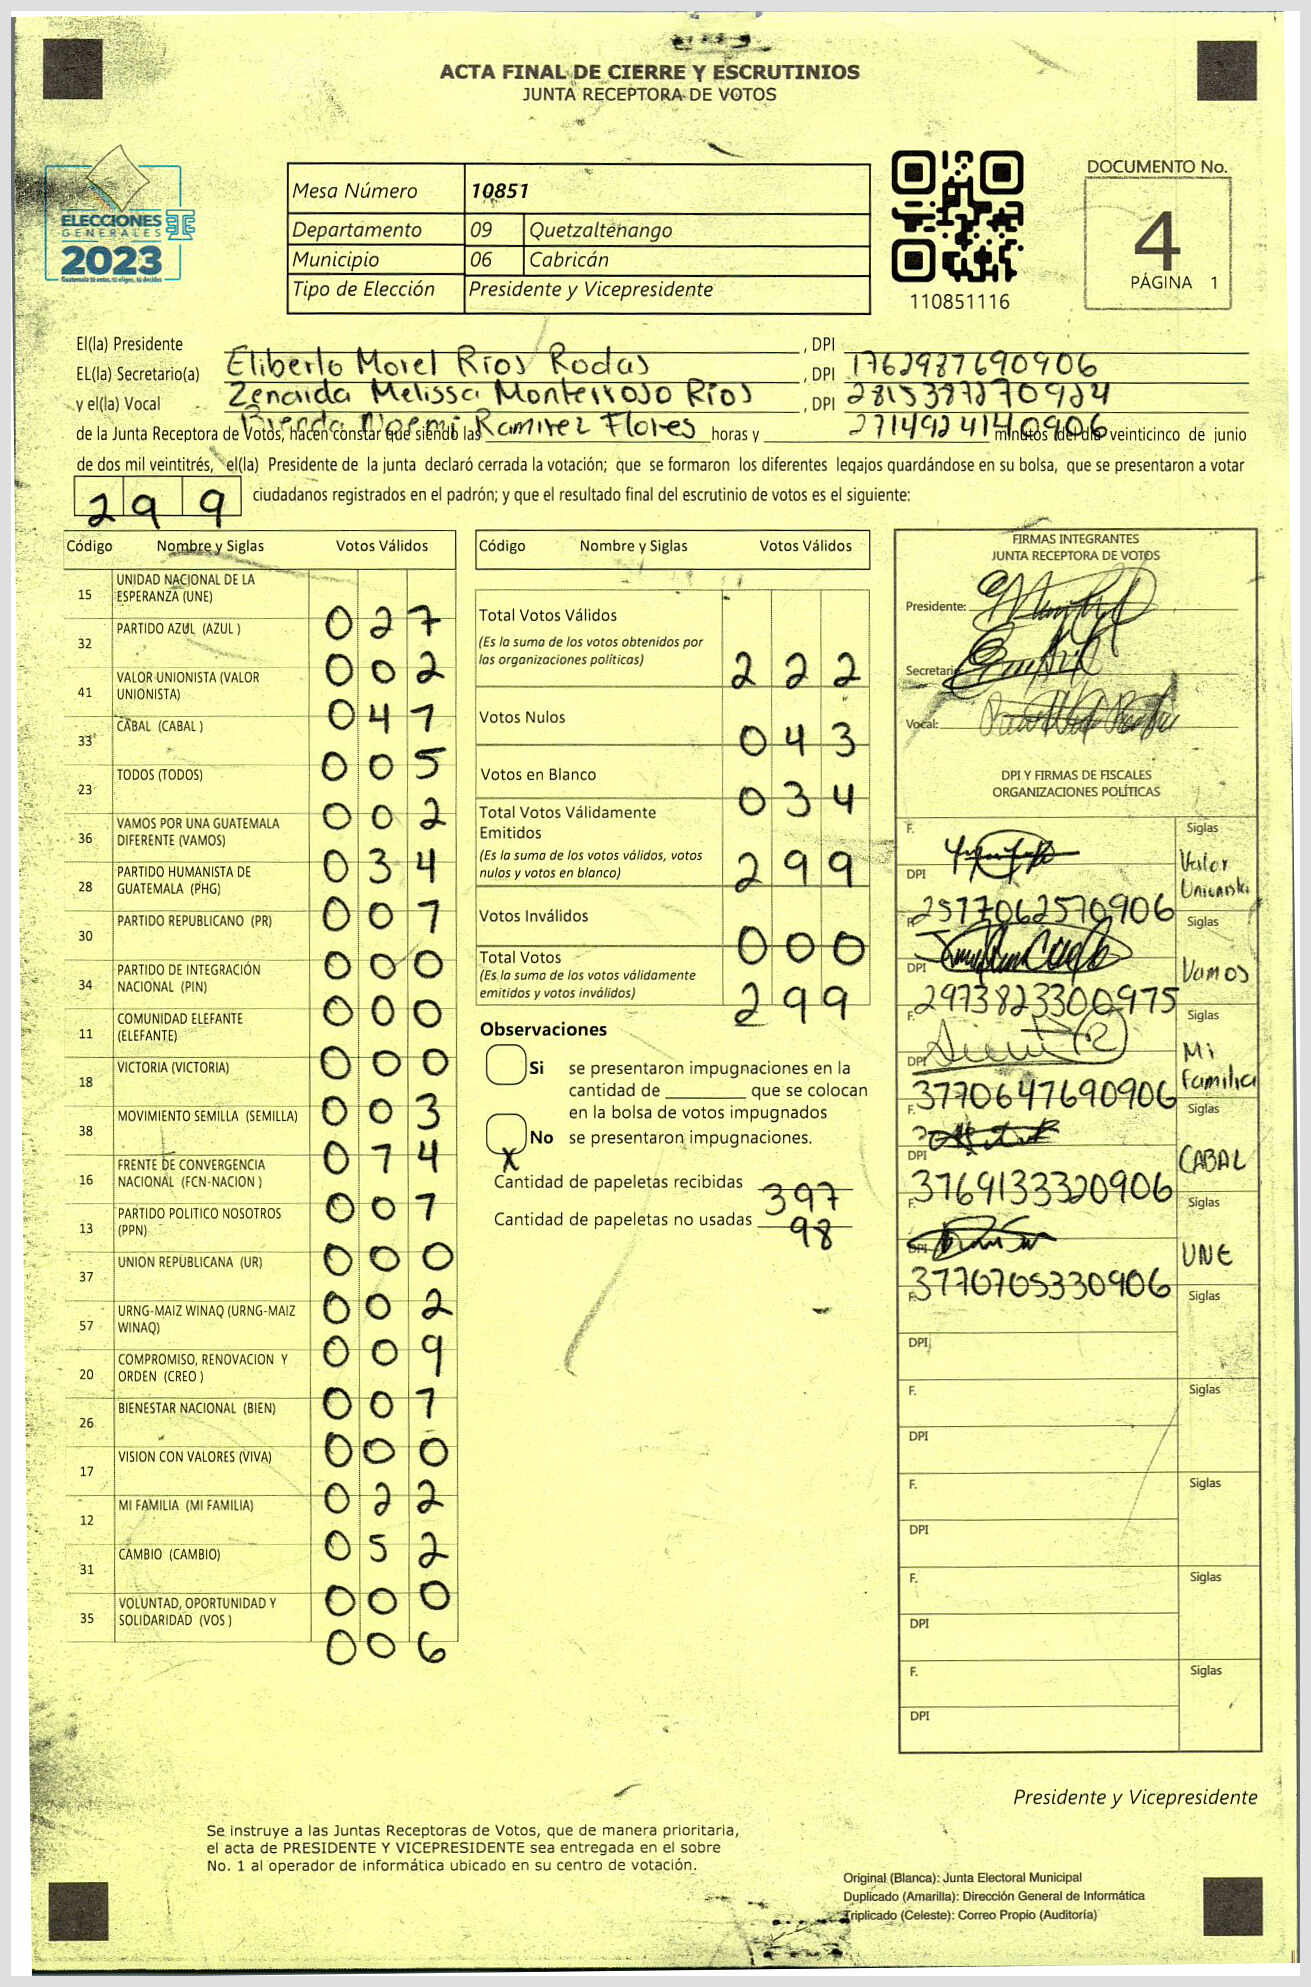 ACTA FINAL DE CIERRE Y ESCRUTINIOS
JUNTA RECEPTORA DE VOTOS
ELECCIONES
GENERALES
2023
Guatemala tú votas, tú eliges, tú decides
Mesa Número 10851
Departamento 09 Quetzaltenango
Municipio 06 Cabricán
Tipo de Elección Presidente y Vicepresidente
110851116
DOCUMENTO No.
4
PÁGINA 1
El(la) Presidente Eliberto Morel Ríos Rodas, DPI 1762987690906
EL(la) Secretario(a) Zenaida Melissa Monterroso Ríos, DPI
y el(la) Vocal Brenda Noemi Ramirez Flores, DPI 2714924140906
de la Junta Receptora de Votos, hacen constar que siendo las horas y minutos del día veinticinco de junio
de dos mil veintitrés, el(la) Presidente de la junta declaró cerrada la votación; que se formaron los diferentes legajos guardándose en su bolsa, que se presentaron a votar
299 ciudadanos registrados en el padrón; y que el resultado final del escrutinio de votos es el siguiente:
Código Nombre y Siglas Votos Válidos
15 UNIDAD NACIONAL DE LA ESPERANZA (UNE) 027
32 PARTIDO AZUL (AZUL ) 002
41 VALOR UNIONISTA (VALOR UNIONISTA) 047
33 CABAL (CABAL ) 005
23 TODOS (TODOS) 002
36 VAMOS POR UNA GUATEMALA DIFERENTE (VAMOS) 034
28 PARTIDO HUMANISTA DE GUATEMALA (PHG) 007
30 PARTIDO REPUBLICANO (PR) 000
34 PARTIDO DE INTEGRACIÓN NACIONAL (PIN) 000
11 COMUNIDAD ELEFANTE (ELEFANTE) 000
18 VICTORIA (VICTORIA) 003
38 MOVIMIENTO SEMILLA (SEMILLA) 074
16 FRENTE DE CONVERGENCIA NACIONAL (FCN-NACION ) 007
13 PARTIDO POLITICO NOSOTROS (PPN) 000
37 UNION REPUBLICANA (UR) 002
57 URNG-MAIZ WINAQ (URNG-MAIZ WINAQ) 009
20 COMPROMISO, RENOVACION Y ORDEN (CREO ) 007
26 BIENESTAR NACIONAL (BIEN) 000
17 VISION CON VALORES (VIVA) 022
12 MI FAMILIA (MI FAMILIA) 052
31 CAMBIO (CAMBIO) 000
35 VOLUNTAD, OPORTUNIDAD Y SOLIDARIDAD (VOS ) 006
Código Nombre y Siglas Votos Válidos
Total Votos Válidos
(Es la suma de los votos obtenidos por
las organizaciones políticas) 222
Votos Nulos 043
Votos en Blanco 034
Total Votos Válidamente
Emitidos
(Es la suma de los votos válidos, votos
nulos y votos en blanco) 299
Votos Inválidos 000
Total Votos
(Es la suma de los votos válidamente
emitidos y votos inválidos) 299
Observaciones
Si se presentaron impugnaciones en la
cantidad de ________ que se colocan
en la bolsa de votos impugnados
X No se presentaron impugnaciones.
Cantidad de papeletas recibidas 397
Cantidad de papeletas no usadas 98
FIRMAS INTEGRANTES
JUNTA RECEPTORA DE VOTOS
Presidente:
Secretario:
Vocal:
DPI Y FIRMAS DE FISCALES
ORGANIZACIONES POLÍTICAS
F. Siglas Valor Unionista
DPI 2577062570906
F. Siglas Vamos
DPI 2973823300975
F. Siglas Mi Familia
DPI 3770647690906
F. Siglas CABAL
DPI 3769133320906
F. Siglas UNE
DPI 3770705330906
F. Siglas
DPI
F. Siglas
DPI
F. Siglas
DPI
F. Siglas
DPI
F. Siglas
DPI
Presidente y Vicepresidente
Se instruye a las Juntas Receptoras de Votos, que de manera prioritaria,
el acta de PRESIDENTE Y VICEPRESIDENTE sea entregada en el sobre
No. 1 al operador de informática ubicado en su centro de votación.
Original (Blanca): Junta Electoral Municipal
Duplicado (Amarilla): Dirección General de Informática
Triplicado (Celeste): Correo Propio (Auditoría)